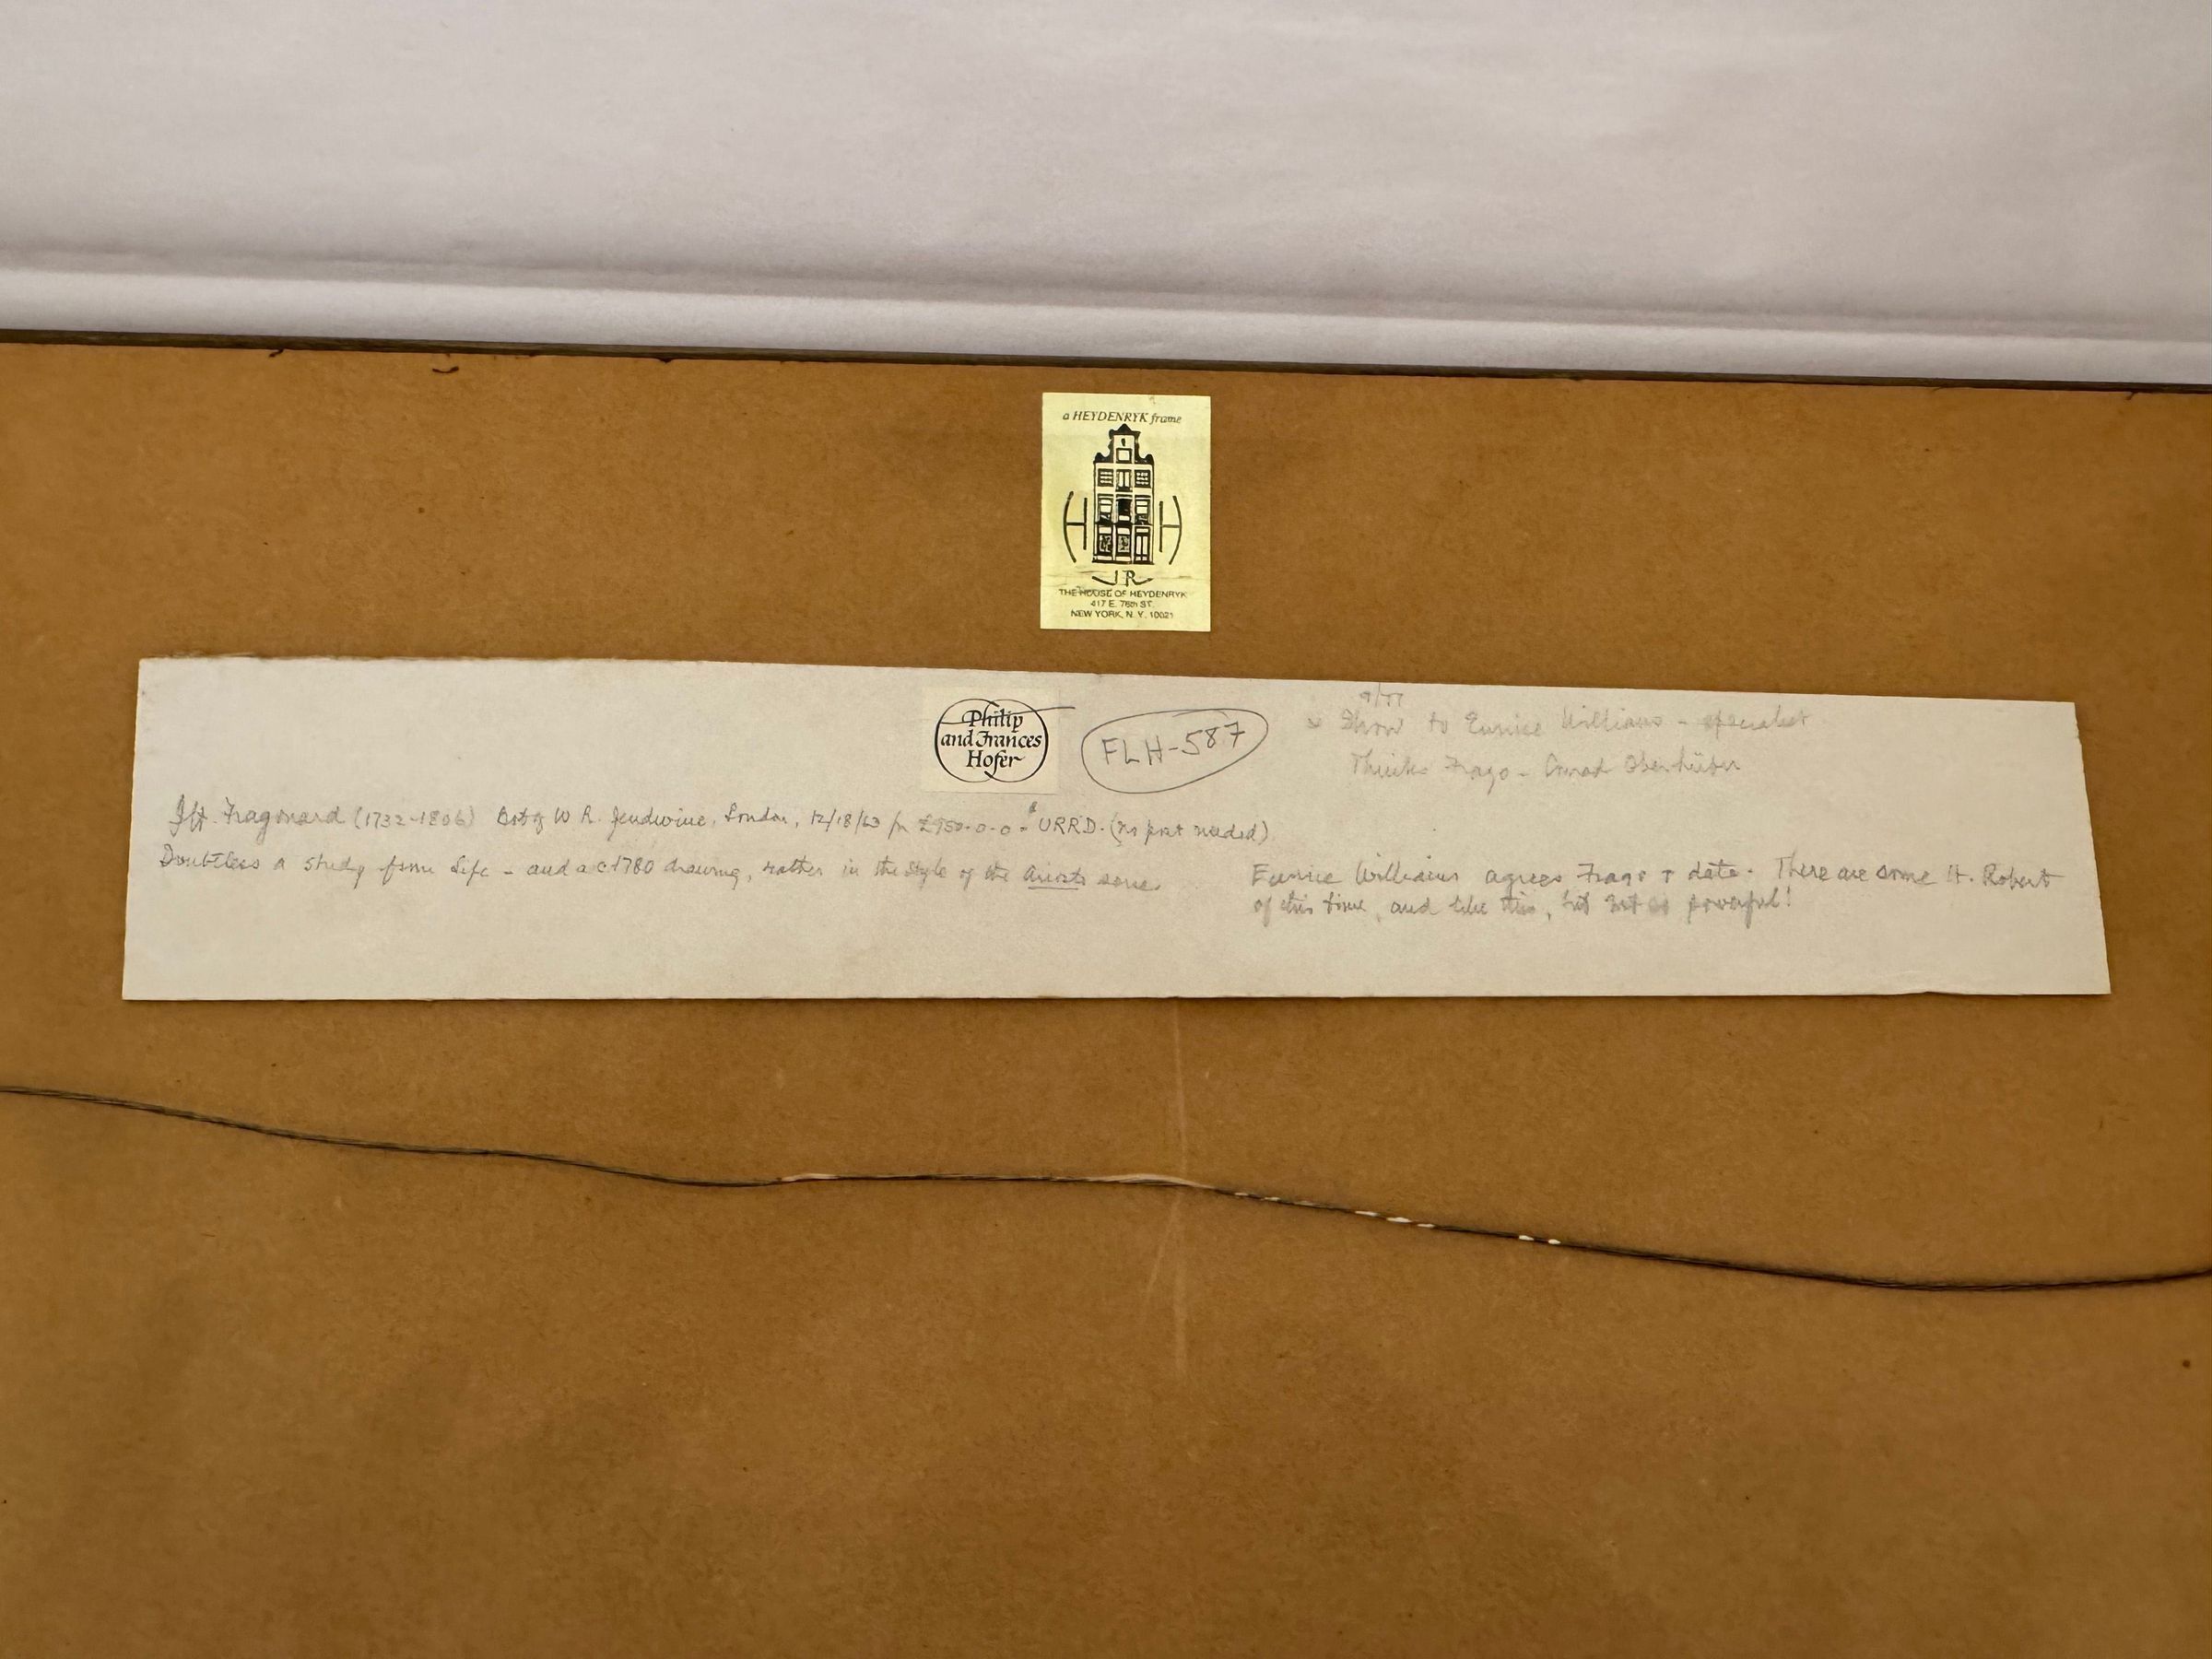 a HEYDENRYK frame
H H
JR
THE HOUSE OF HEYDENRYK
417 E. 76th ST.
NEW YORK, N. Y. 10021
Philip
and Frances
Hofer
FLH-587
Show to Eunice Williams - specialist
Thinks Frago - Konrad Oberhüber
Fragonard (1732-1806) Bot of W R. Jeudwine, London, 12/18/63 for £950-0-0 - URRD. (no post needed)
Doubtless a study from life - and a c 1780 drawing, rather in the style of the Ariosto series
Eunice Williams agrees Frago + date. There are some H. Robert
of this time, and like this, but not so powerful!